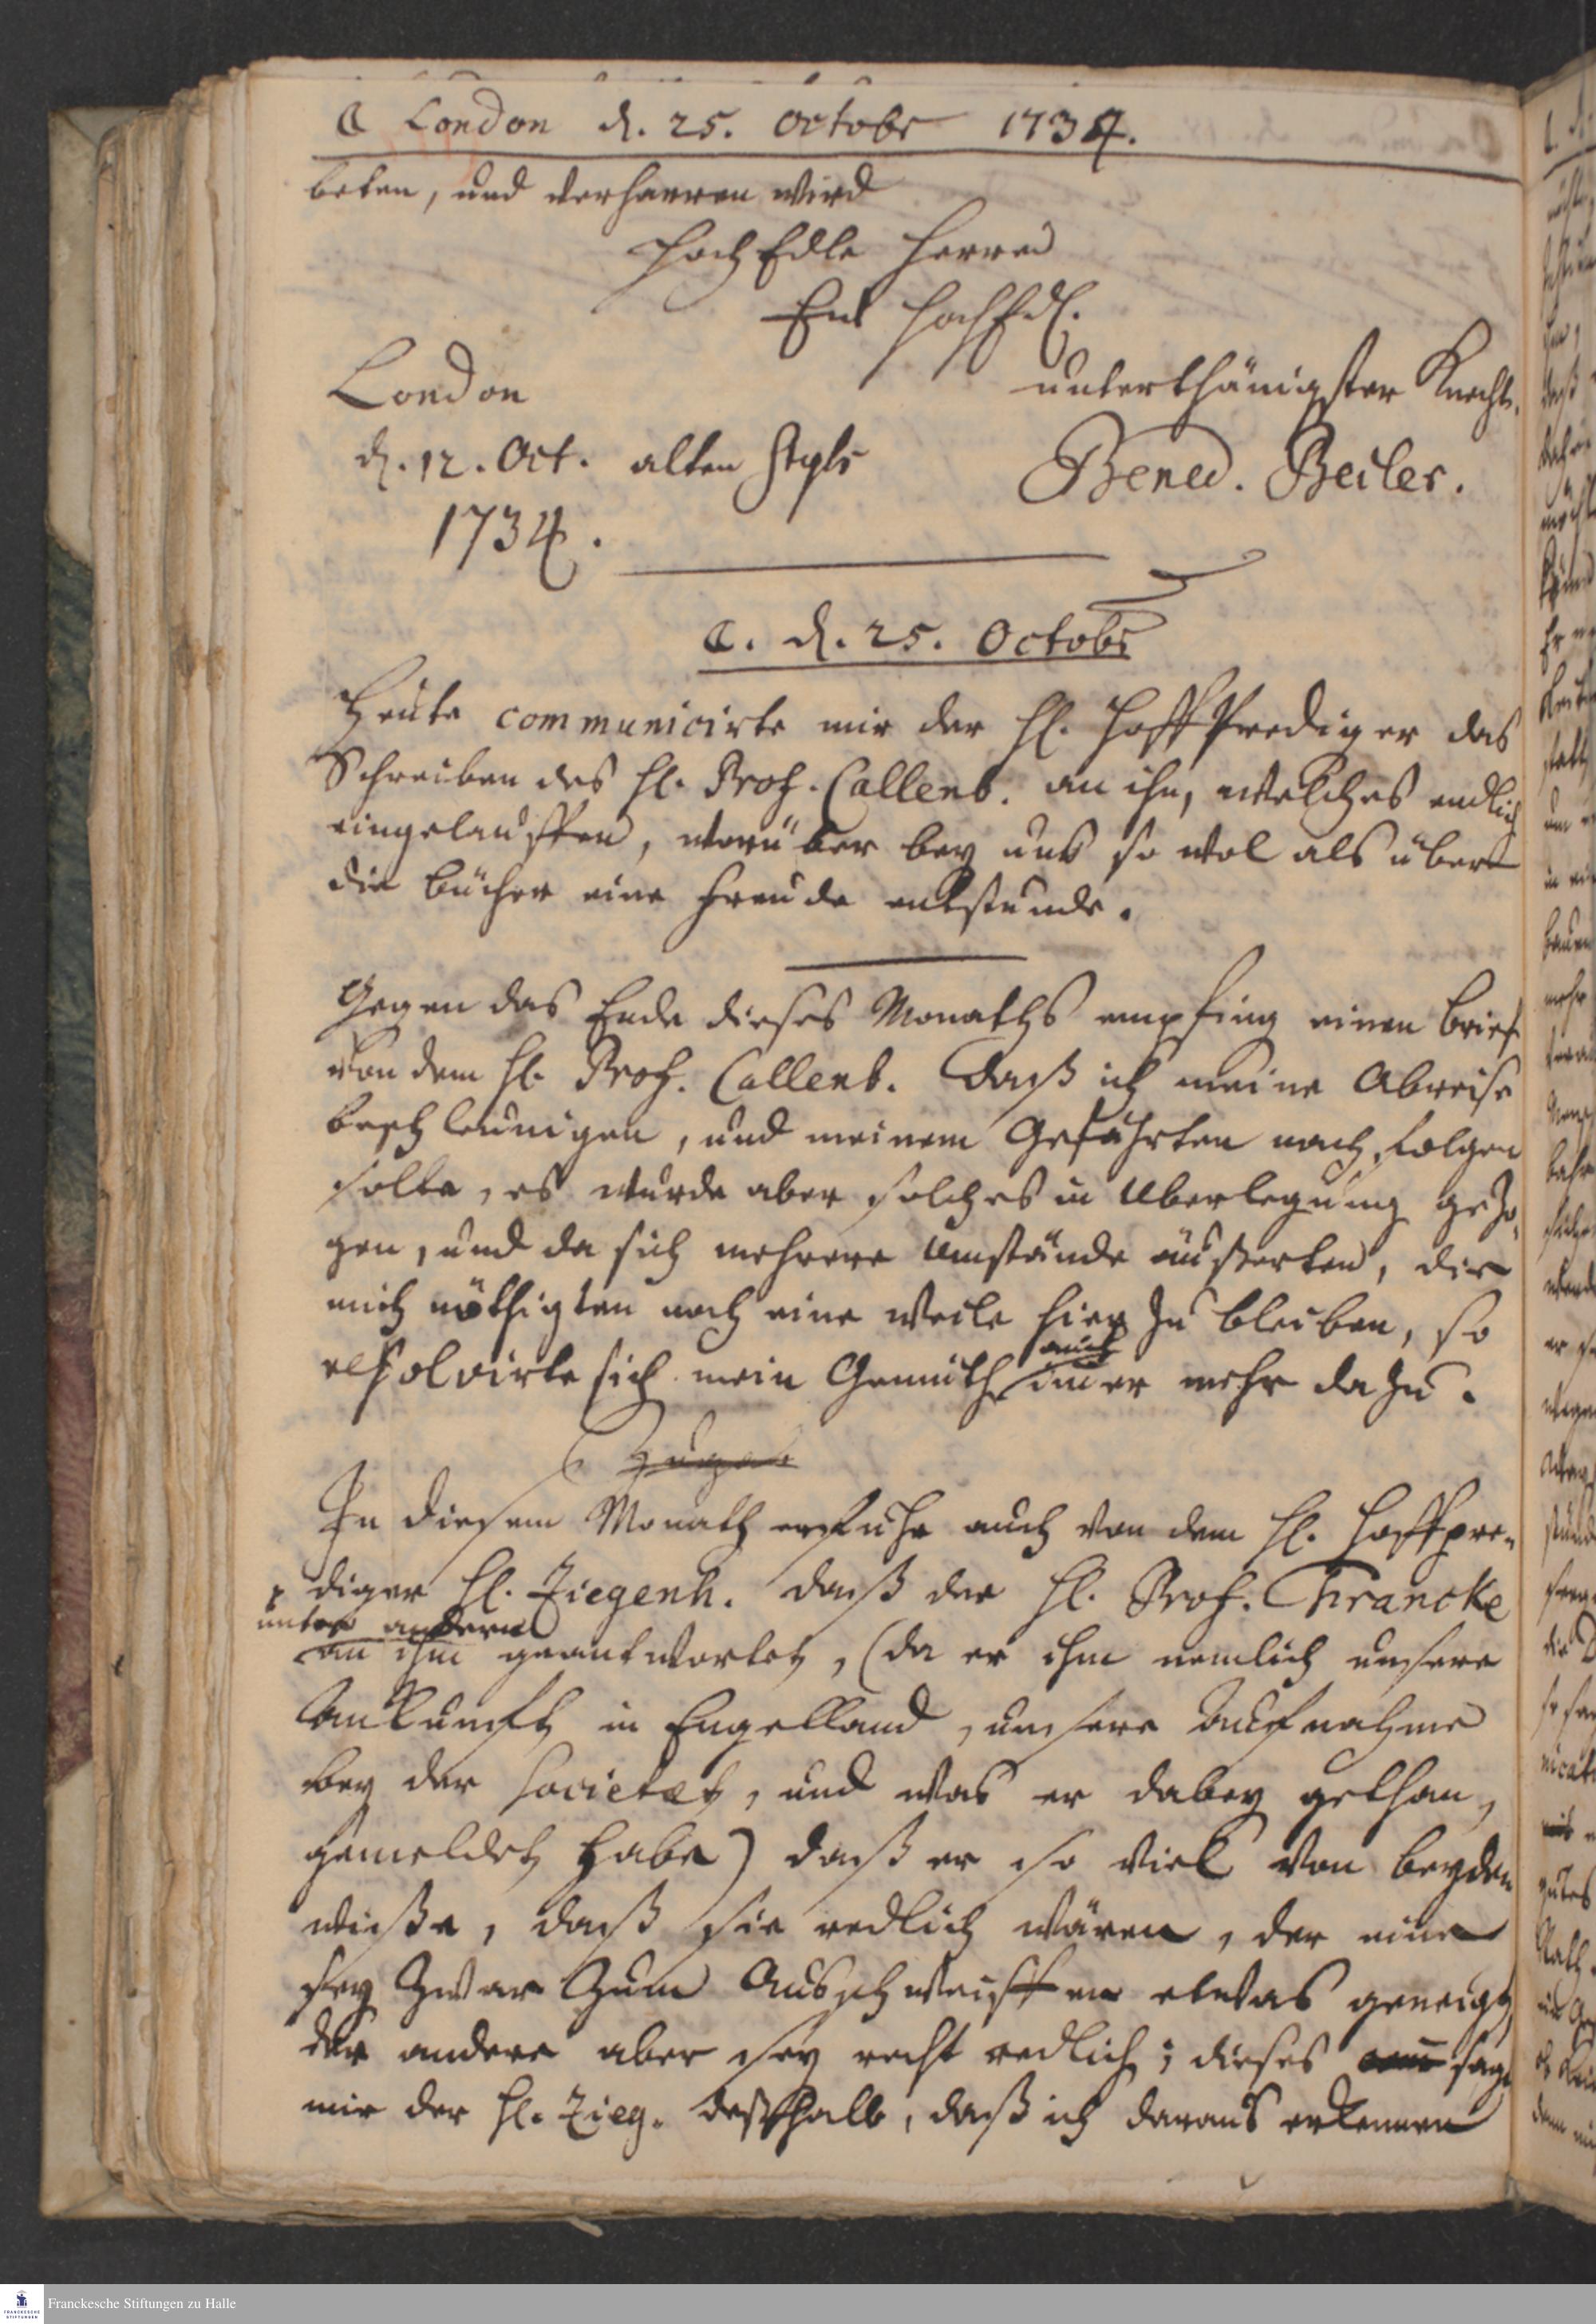 a London d. 25. Octobr 1734.
beten, und verharren wird
HochEdle Herren
Eur HochEdl.
London unterthänigster Knecht,
d. 12. Oct. alten Styls Bened. Beiler.
1734.
a. d. 25. Octobr
Heute communicirte mir der H. HoffPrediger das
Schreiben des H. Prof. Callenb. an ihn, welches endlich
eingelauffen, worüber bey uns so wol als über
die bücher eine Freude entstunde.
Gegen das Ende dieses Monaths empfing einen brief
von dem H. Prof. Callenb. Daß ich meine Abreise
beschleunigen, und meinem Gefährten nach folgen
solte, es wurde aber solches in Uberlegung gezo-
gen, und da sich mehrere Umstände äusserten, die
mich nöthigten noch eine Weile hier zu bleiben, so
auch
resolvirte sich mein Gemüth immer mehr dazu.
In diesem Monath erfuhr auch von dem H. Hoffpre-
diger H. Ziegenh. daß der H. Prof. Francke
unter andern
an ihn geantwortet, (da er ihm nemlich unsere
Ankunfft in Engelland, unsere Aufnahme
bey der Societæt, und was er dabey gethan,
gemeldet habe) daß er so viel von beyden
wisse, daß sie redlich wären, der eine
sey zwar zum Ausschweiffen etwas geneigt,
der andere aber sey recht redlich; dieses sagt
mir der H. Zieg. deßhalb, daß ich daraus erkennen
Franckesche Stiftungen zu Halle
FRANCKESCHE STIFTUNGEN